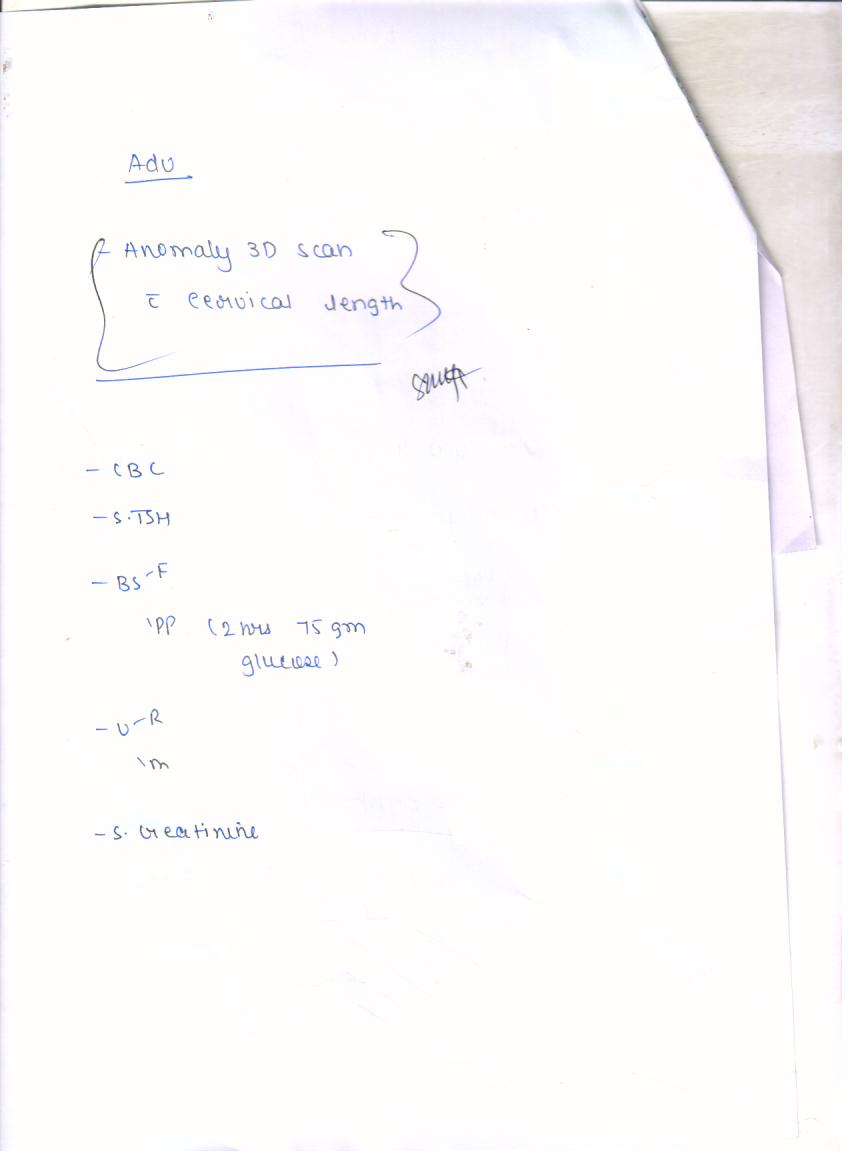 Adv
- Anomaly 3D scan
c̄ cervical length
- CBC
- S.TSH
- BS-F
\PP (2 hrs 75 gm
glucose)
- U-R
\m
- S. creatinine